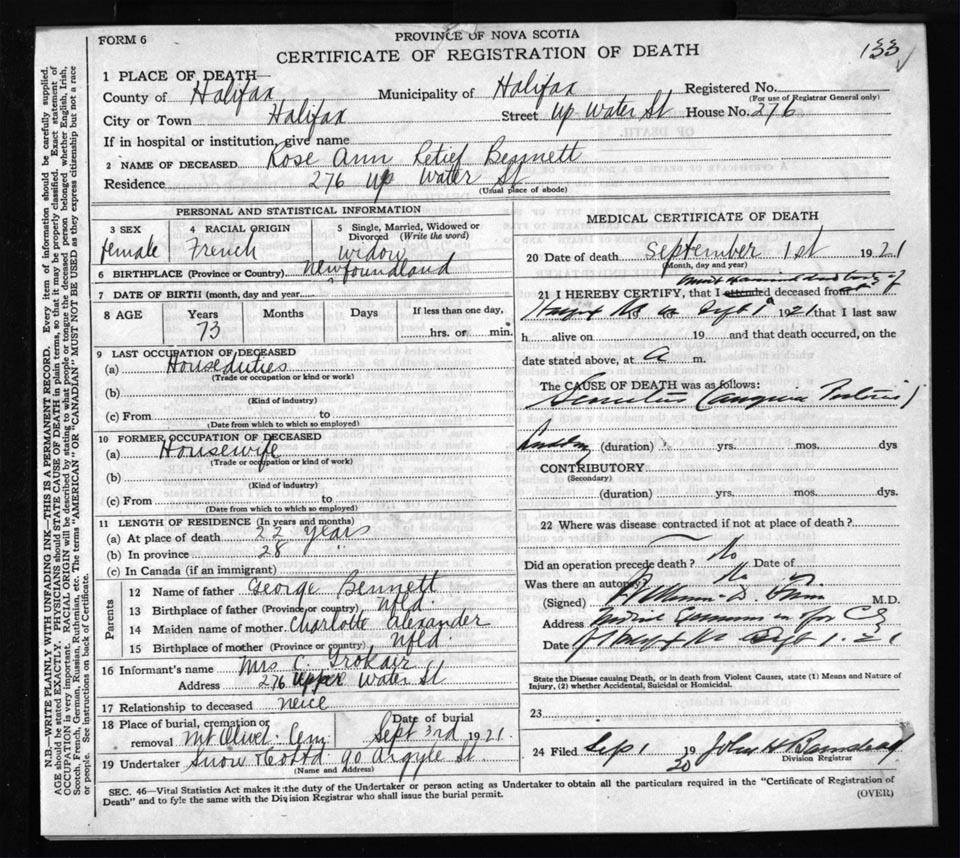 FORM 6
PROVINCE OF NOVA SCOTIA
CERTIFICATE OF REGISTRATION OF DEATH
133
1 PLACE OF DEATH—
County of Halifax Municipality of Halifax Registered No.
(For use of Registrar General only)
City or Town Halifax Street Up Water St House No. 276
If in hospital or institution, give name
2 NAME OF DECEASED Rose Ann Letief Bennett
Residence 276 Up Water St
(Usual place of abode)
PERSONAL AND STATISTICAL INFORMATION
3 SEX 4 RACIAL ORIGIN 5 Single, Married, Widowed or Divorced (Write the word)
Female French Widow
6 BIRTHPLACE (Province or Country) Newfoundland
7 DATE OF BIRTH (month, day and year)
8 AGE Years Months Days If less than one day,
73 hrs. or min.
9 LAST OCCUPATION OF DECEASED
(a) House duties
(Trade or occupation or kind or work)
(b)
(Kind of industry)
(c) From to
(Date from which to which so employed)
10 FORMER OCCUPATION OF DECEASED
(a) Housewife
(Trade or occupation or kind or work)
(b)
(Kind of industry)
(c) From to
(Date from which to which so employed)
11 LENGTH OF RESIDENCE (In years and months)
(a) At place of death 22 years
(b) In province 28 "
(c) In Canada (if an immigrant)
Parents
12 Name of father George Bennett
13 Birthplace of father (Province or country) Nfld.
14 Maiden name of mother Charlotte Alexander
15 Birthplace of mother (Province or country) Nfld.
16 Informant's name Mrs C.
Address 276 Upper Water St
17 Relationship to deceased neice
18 Place of burial, cremation or removal Mt Olivet Cem Date of burial Sept 3rd 1921
19 Undertaker Snow & Co Ltd 90 Argyle St.
(Name and Address)
MEDICAL CERTIFICATE OF DEATH
20 Date of death September 1st 1921
(Month, day and year)
21 I HEREBY CERTIFY, that I attended deceased from
19 to Sept 1 1921 that I last saw
h alive on 19 and that death occurred, on the
date stated above, at A m.
The CAUSE OF DEATH was as follows:
(Angina Pectoris)
(duration) yrs. mos. dys
CONTRIBUTORY
(Secondary)
(duration) yrs. mos. dys.
22 Where was disease contracted if not at place of death?
Did an operation precede death? No Date of
Was there an autopsy No
(Signed) M.D.
Address Medical
Date Halifax NS Sept 1. 21
State the Disease causing Death, or in death from Violent Causes, state (1) Means and Nature of
Injury, (2) whether Accidental, Suicidal or Homicidal.
23
24 Filed Sep 1 19
20
Division Registrar
SEC. 46—Vital Statistics Act makes it the duty of the Undertaker or person acting as Undertaker to obtain all the particulars required in the "Certificate of Registration of
Death" and to fyle the same with the Division Registrar who shall issue the burial permit.
(OVER)
N.B.—WRITE PLAINLY WITH UNFADING INK—THIS IS A PERMANENT RECORD. Every item of information should be carefully supplied.
AGE should be stated EXACTLY. PHYSICIANS should STATE CAUSE OF DEATH in plain terms, so that it may be properly classified. Exact statement of
OCCUPATION is very important. RACIAL ORIGIN will be described by stating to what people or tongue the deceased person belonged, whether English, Irish,
Scotch, French, German, Russian, Ruthenian, etc. The terms "AMERICAN" OR "CANADIAN" MUST NOT BE USED as they express citizenship but not a race
or people. See instructions on back of Certificate.